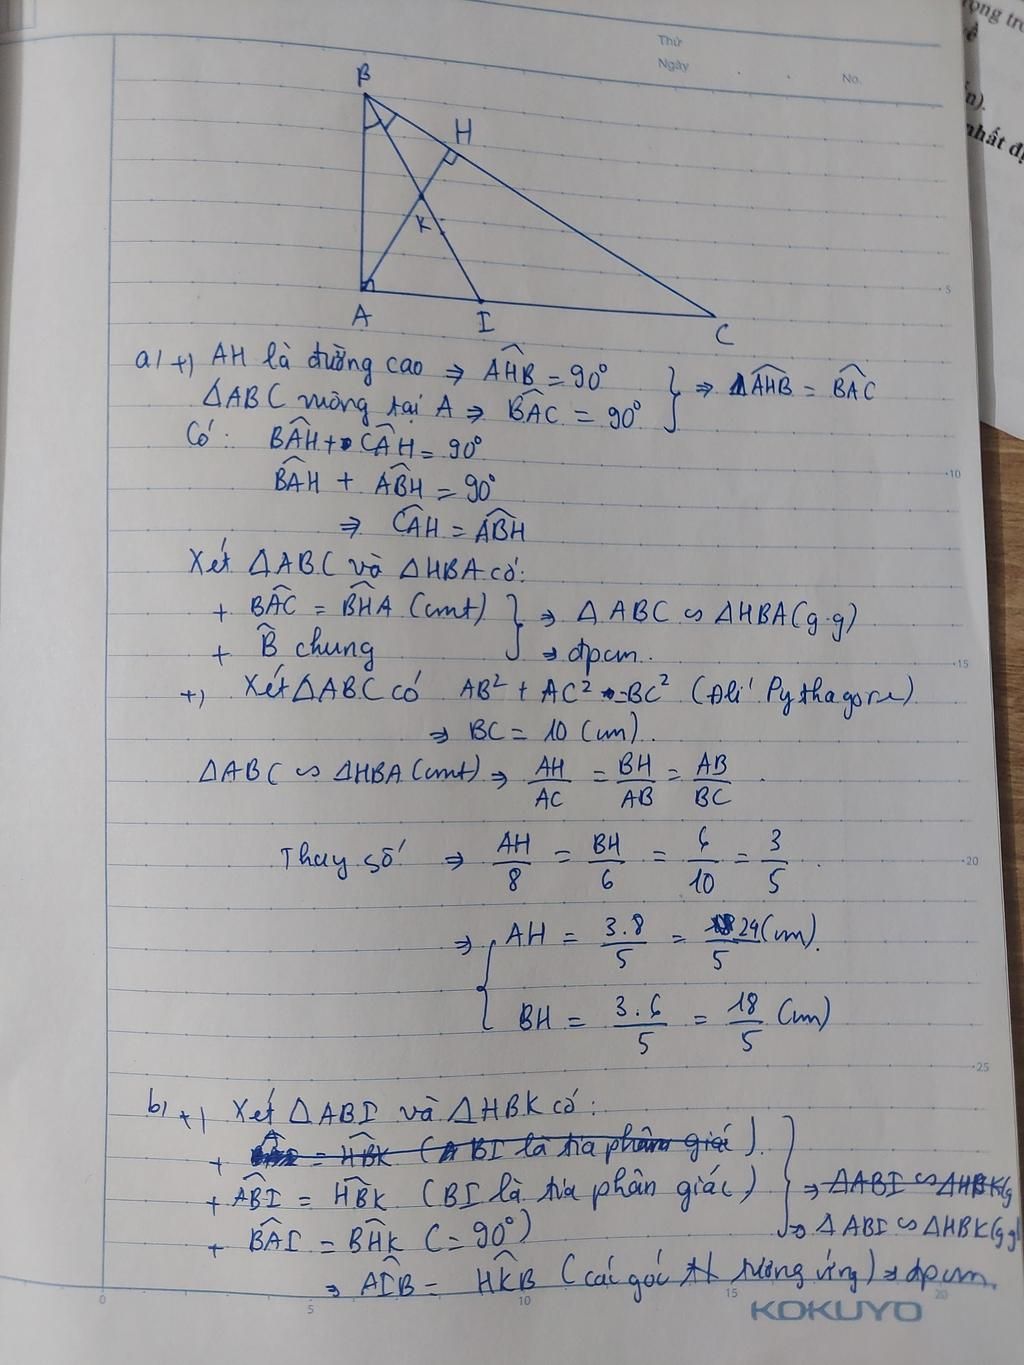 Thứ
Ngày
No.
B
H
K
A
I
C
a) +) AH là đường cao ⇒ AHB = 90° } ⇒ ΔAHB = BAC
ΔABC vuông tại A ⇒ BAC = 90°
Có: BAH + CAH = 90°
BAH + ABH = 90°
⇒ CAH = ABH
Xét ΔABC và ΔHBA có:
+ BAC = BHA (cmt) } ⇒ ΔABC ∽ ΔHBA (g.g)
+ B chung ⇒ đpcm.
+) Xét ΔABC có AB² + AC² = BC² (Đlí Pythagore)
⇒ BC = 10 (cm).
ΔABC ∽ ΔHBA (cmt) ⇒ AH/AC = BH/AB = AB/BC
Thay số ⇒ AH/8 = BH/6 = 6/10 = 3/5.
⇒ { AH = 3.8/5 = 24/5 (cm).
BH = 3.6/5 = 18/5 (cm)
b) +) Xét ΔABI và ΔHBK có:
+ = HBK (BI là tia phân giác).
+ ABI = HBK (BI là tia phân giác) } ⇒ ΔABI ∽ ΔHBK (g
+ BAI = BHK (= 90°) ⇒ ΔABI ∽ ΔHBK (g.g)
⇒ AIB = HKB (các góc tương ứng) ⇒ đpcm.
KOKUYO
nhất
5
10
15
20
25
0
5
10
15
20